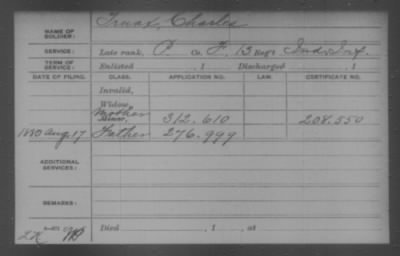 NAME OF SOLDIER: Truax, Charles
SERVICE: Late rank, P. Co. F, 13 Reg't Ind. Inf.
TERM OF SERVICE: Enlisted , 1 Discharged , 1
DATE OF FILING. CLASS. APPLICATION NO. LAW. CERTIFICATE NO.
Invalid,
Widow,
Mother 312.610 208.550
Minor,
1880 Aug 17 Father 276.999
ADDITIONAL SERVICES:
REMARKS:
Died , 1 , at